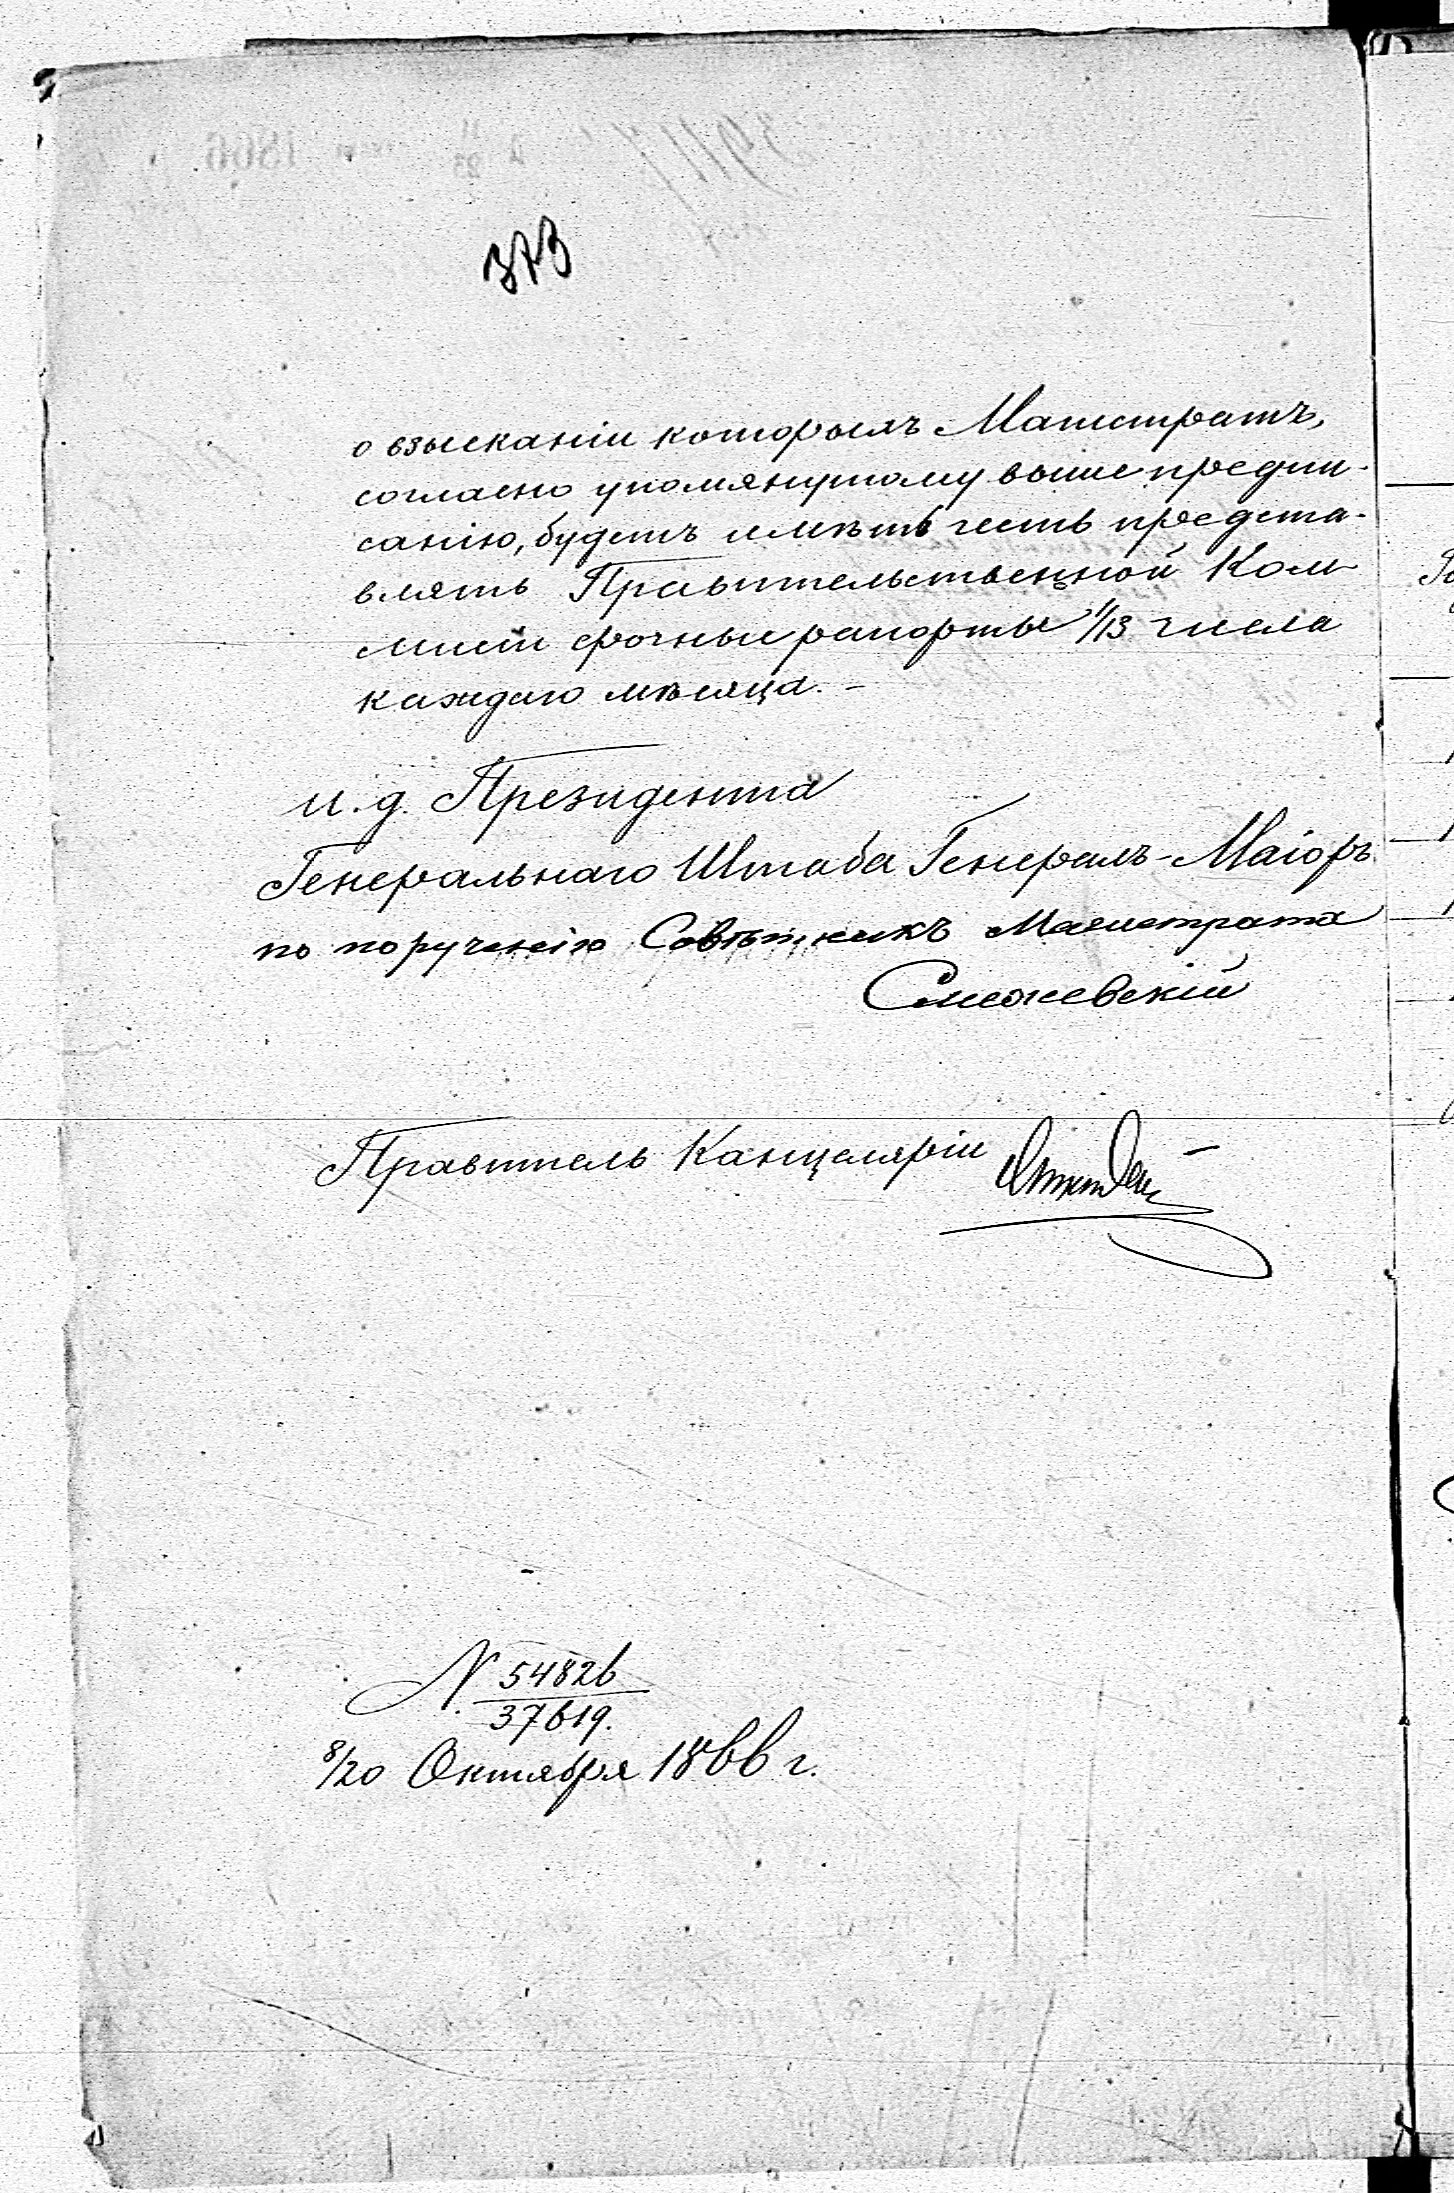 о взысканіи которыхъ Магистратъ,
согласно упомянутому выше предпи-
санію, будетъ имѣть честь предста-
влять Правительственной Ком-
мисіи срочные рапорты 1/13 числа
каждаго мѣсяца. –
и. д. Президента
Генеральнаго Штаба Генералъ-Маіоръ
по порученію Совѣтникъ Магистрата
Правитель Канцеляріи
N. 54826
37619.
8/20 Октября 1866 г.